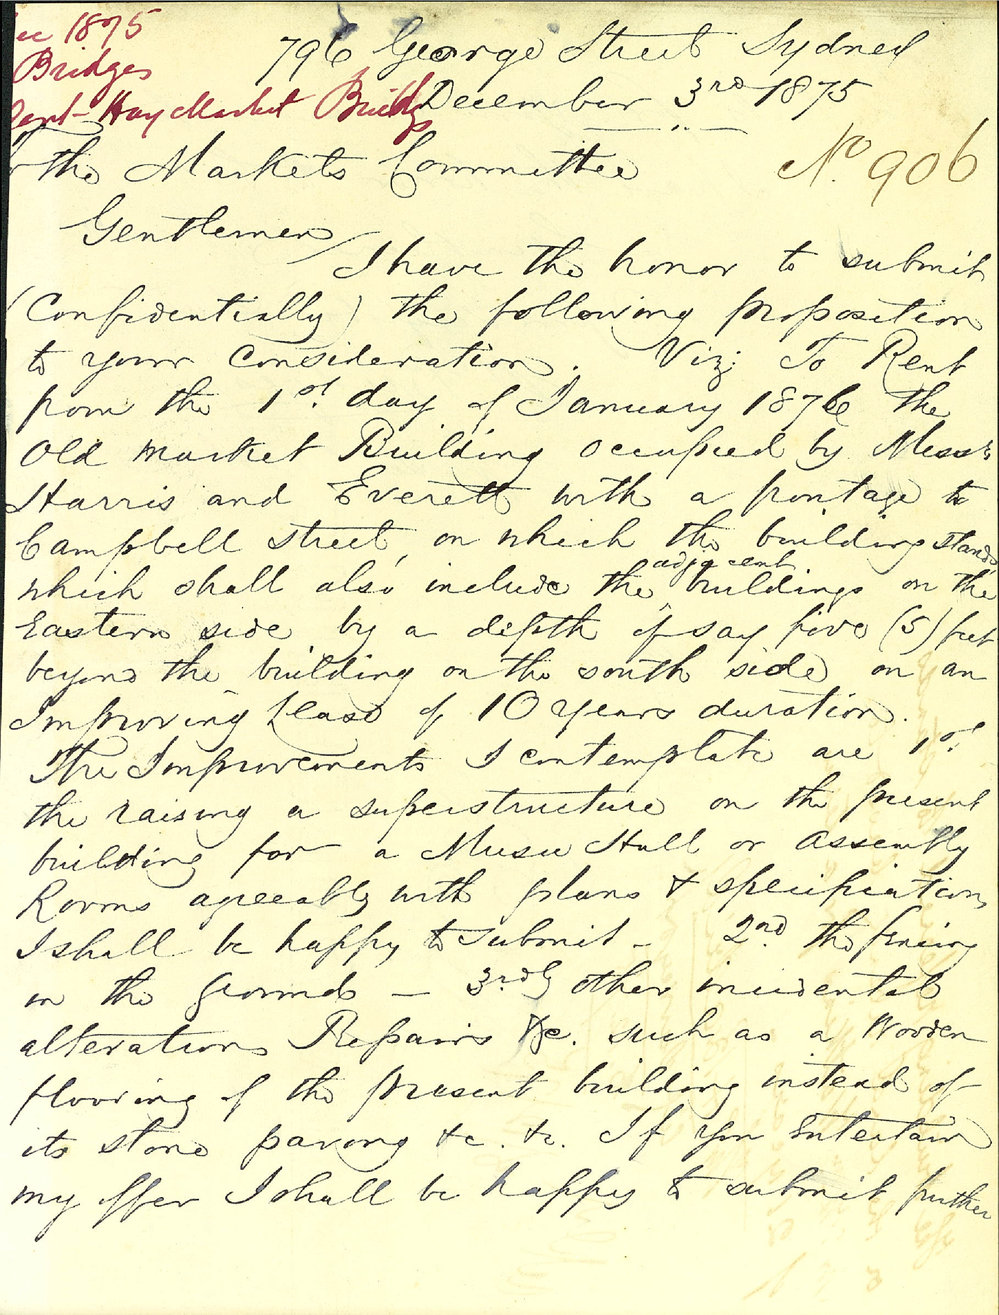 Dec 1875
Bridges
Rent - Hay Market Buildgs
796 George Street Sydney
December 3rd 1875
To the Markets Committee
No. 906
Gentlemen
I have the honor to submit
(Confidentially) the following proposition
to your consideration. Viz; To Rent
from the 1st day of January 1876 the
Old Market Building occupied by Messrs
Harris and Everett with a frontage to
Campbell Street, on which the building stands
which shall also include the adjacent buildings on the
Eastern side by a depth of say five (5) feet
beyond the building on the south side on an
Improving Lease of 10 years duration.
The Improvements I contemplate are 1st
the raising a superstructure on the present
building for a Music Hall or Assembly
Rooms agreeably with plans & specifications
I shall be happy to submit - 2nd the fencing
in the grounds - 3rdly other incidental
alterations Repairs &c. such as a Wooden
flooring of the present building instead of
its stone paving &c. &c. If you entertain
my offer I shall be happy to submit further